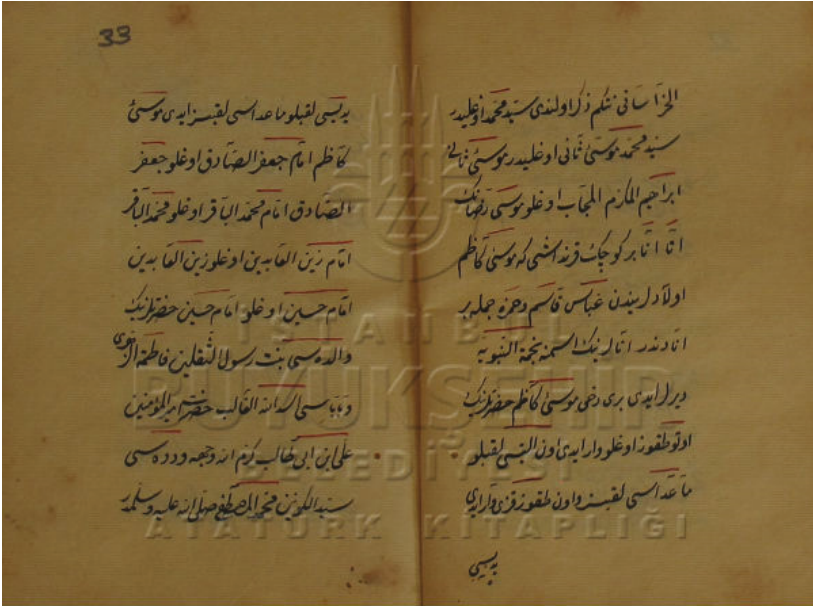 33
الخراسانی نتکم ذکر اولندی سید محمد اوغلیدر
سید محمد موسیٔ ثانی اوغلیدر موسیٔ ثانی
ابراهیم المکرم المجاب اوغلو موسی
اتا اتا بر کوچک قرنداشی که موسی کاظم
اولادلریندن عباس قاسم و حمزه جمله بر
اتادندر انالرینک اسمه نجمة النبویه
دیرلر ایدی بری دخی موسیٔ کاظم حضرتلرینک
اوتوطقوز اوغلو وار ایدی اون التیسی لقبلو
ما عداسی لقبسز و اون طقوز قزی وار ایدی
یدیسی
یدیسی لقبلو ما عداسی لقبسز ایدی موسیٔ
کاظم امام جعفر الصادق اوغلو جعفر
الصادق امام محمد الباقر اوغلو محمد الباقر
امام زین العابدین اوغلو زین العابدین
امام حسین اوغلو امام حسین حضرتلرینک
والده سی بنت رسول الثقلین فاطمة الزهری
و باباسی اسد الله الغالب حضرت امیر المؤمنین
علی ابن ابی طالب کرم الله وجهه و دده سی
سید الکونین محمد المصطفی صلی الله علیه وسلمدر
İSTANBUL
BÜYÜKŞEHİR
BELEDİYESİ
ATATÜRK KİTAPLIĞI